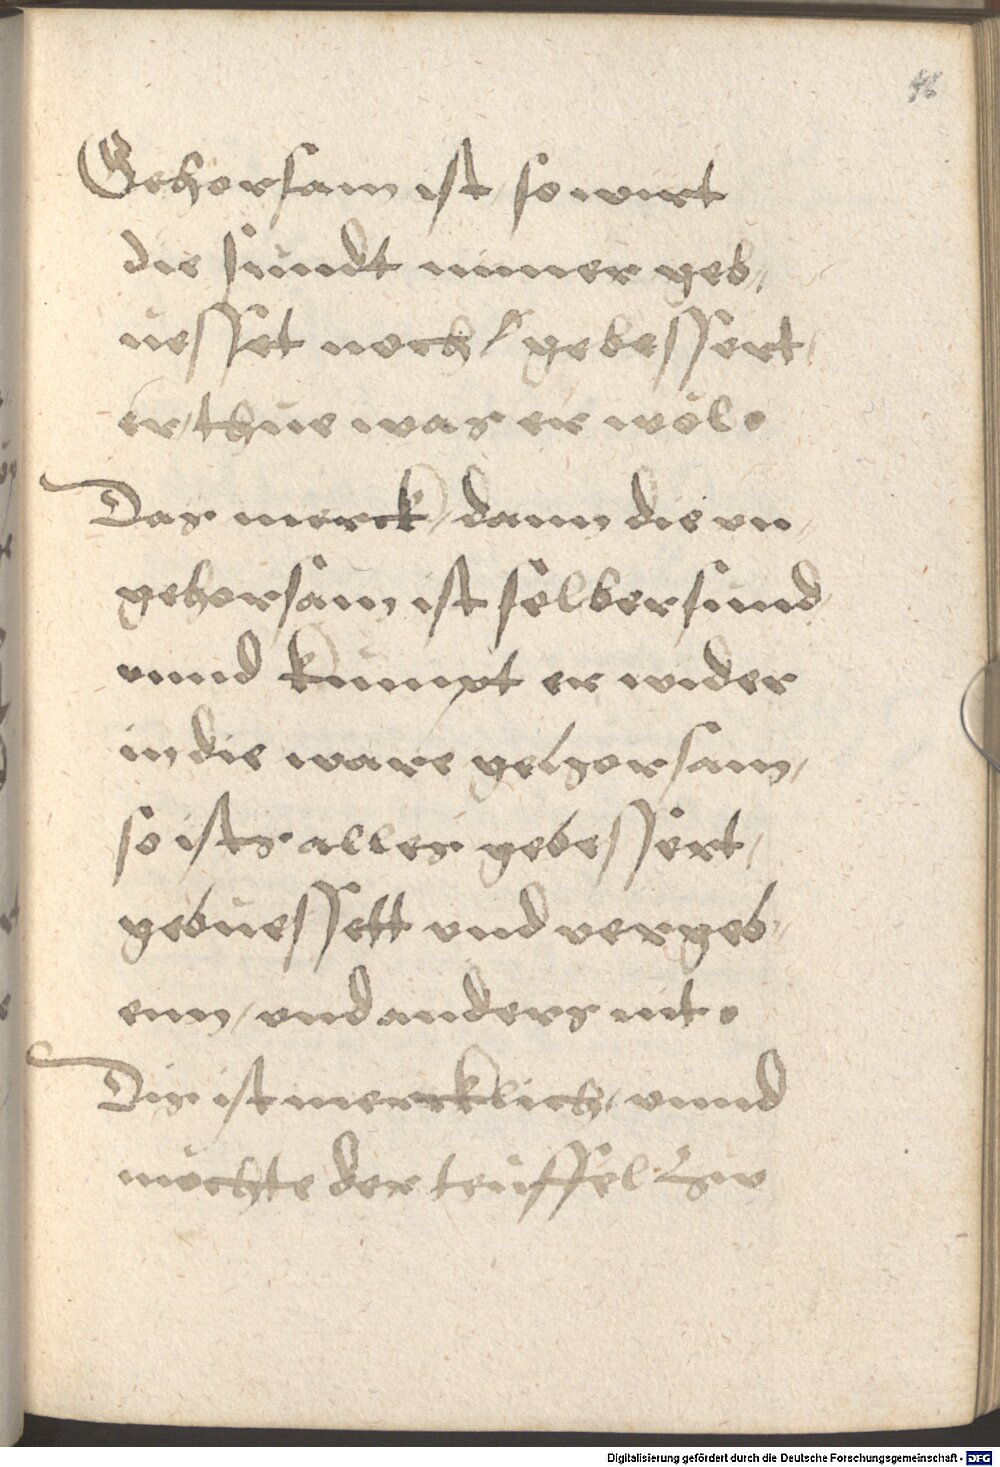 46
Gehorsam ist / so wirt
die sündt nimer geb /
üesset noch / gebessert /
er / thue was er wöl.
Das merck / dann die vn /
gehorsam ist selber sünd /
vnnd kumpt er wider
in die ware gehorsam /
so ists alles gebessert /
gebüessett vnd vergeb /
enn / vnd anders nit.
Dis ist mercklich / vnnd
möchte der teüffel zw
Digitalisierung gefördert durch die Deutsche Forschungsgemeinschaft - DFG